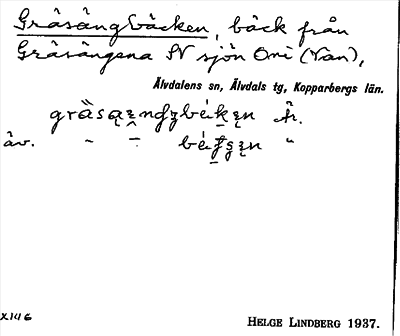 Gråsängbäcken, bäck från
Gråsängena SV sjön Oni (Van),
Älvdalens sn, Älvdals tg, Kopparbergs län.
av.
X146
HELGE LINDBERG 1937.